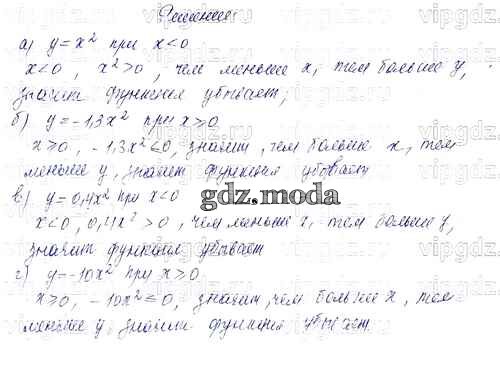 Решение
а) y = x² при x<0
x<0, x²>0, чем меньше x, тем больше y,
значит функция убывает;
б) y = -1,3x² при x⩾0
x⩾0, -1,3x²⩽0, значит, чем больше x, тем
меньше y, значит функция убывает
в) y = 0,4x² при x<0
gdz.moda
x<0, 0,4x²>0, чем меньше x, тем больше y,
значит функция убывает
г) y = -10x² при x⩾0
x⩾0, -10x²⩽0, значит, чем больше x, тем
меньше y значит функция убывает